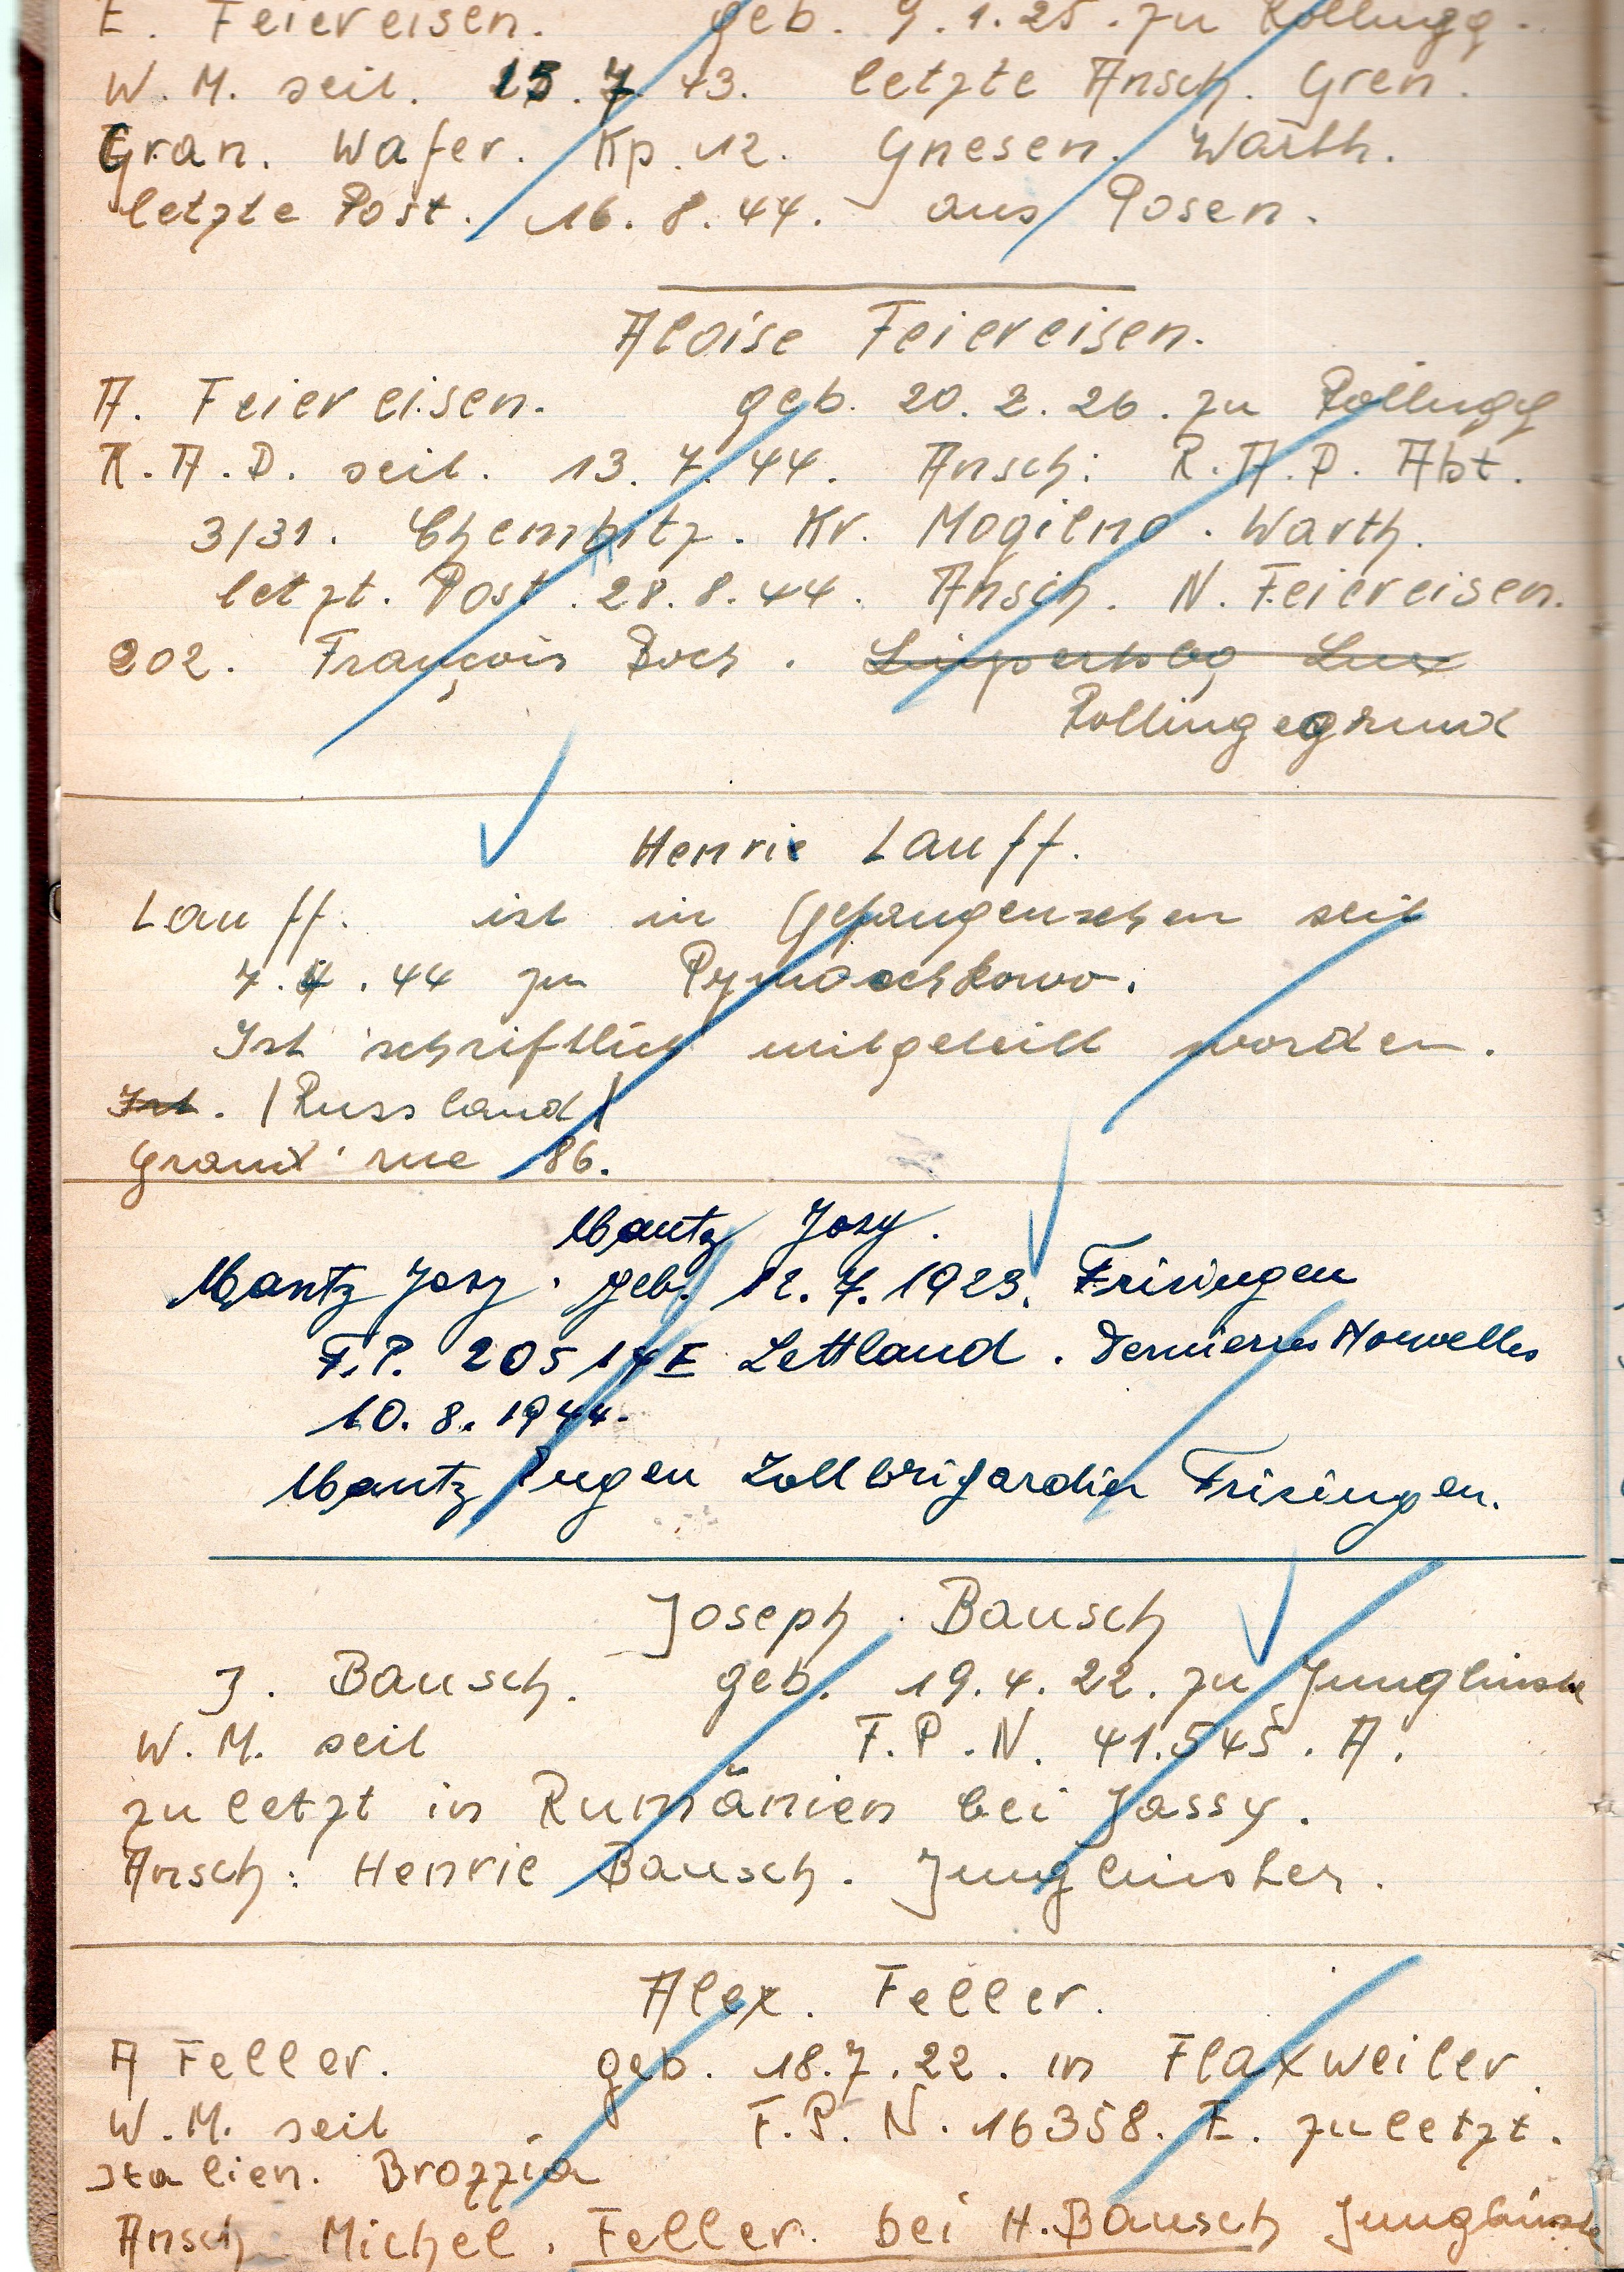 E. Feiereisen. geb. 9.1.25. zu Rollingg.
W.M. seit. 15.7.43. letzte Ansch. Gren.
Gran. Wafer. Kp. 12. Gnesen. Warth.
letzte Post. 16.8.44. aus Posen.
Aloise Feiereisen.
A. Feiereisen. geb. 20.2.26. zu Rollingg
R.A.D. seit. 13.7.44. Ansch: R.A.D. Abt.
3/31. Kr. Mogilno. Warth.
letzt. Post. 28.8.44. Ansch. N. Feiereisen.
202. François Boch. Lux
Rollingegrund
Henrie Lauff.
Lauff. ist in Gefangenschen seit
7.4.44 zu
Ist schriftlich mitgeteilt worden.
Ist. (Russland)
Grand'rue 86.
Mantz Josy.
Mantz Josy. geb. 12.7.1923. Frisingen
F.P. 20514E Lettland. Dernieres Nouvelles
10.8.1944.
Mantz Eugen Zollbrigardier Frisingen.
Joseph. Bausch
J. Bausch. geb. 19.4.22. zu Junglinste
W.M. seit F.P.N. 41.545. A.
zuletzt in Rumänien bei Jassy.
Ansch: Henrie Bausch. Junglinster.
Alex. Feller.
A Feller. geb. 18.7.22. in Flaxweiler.
W.M. seit F.P.N. 16358. E. zuletzt.
Italien. Brozzia
Ansch Michel. Feller. bei H. Bausch Junglinste